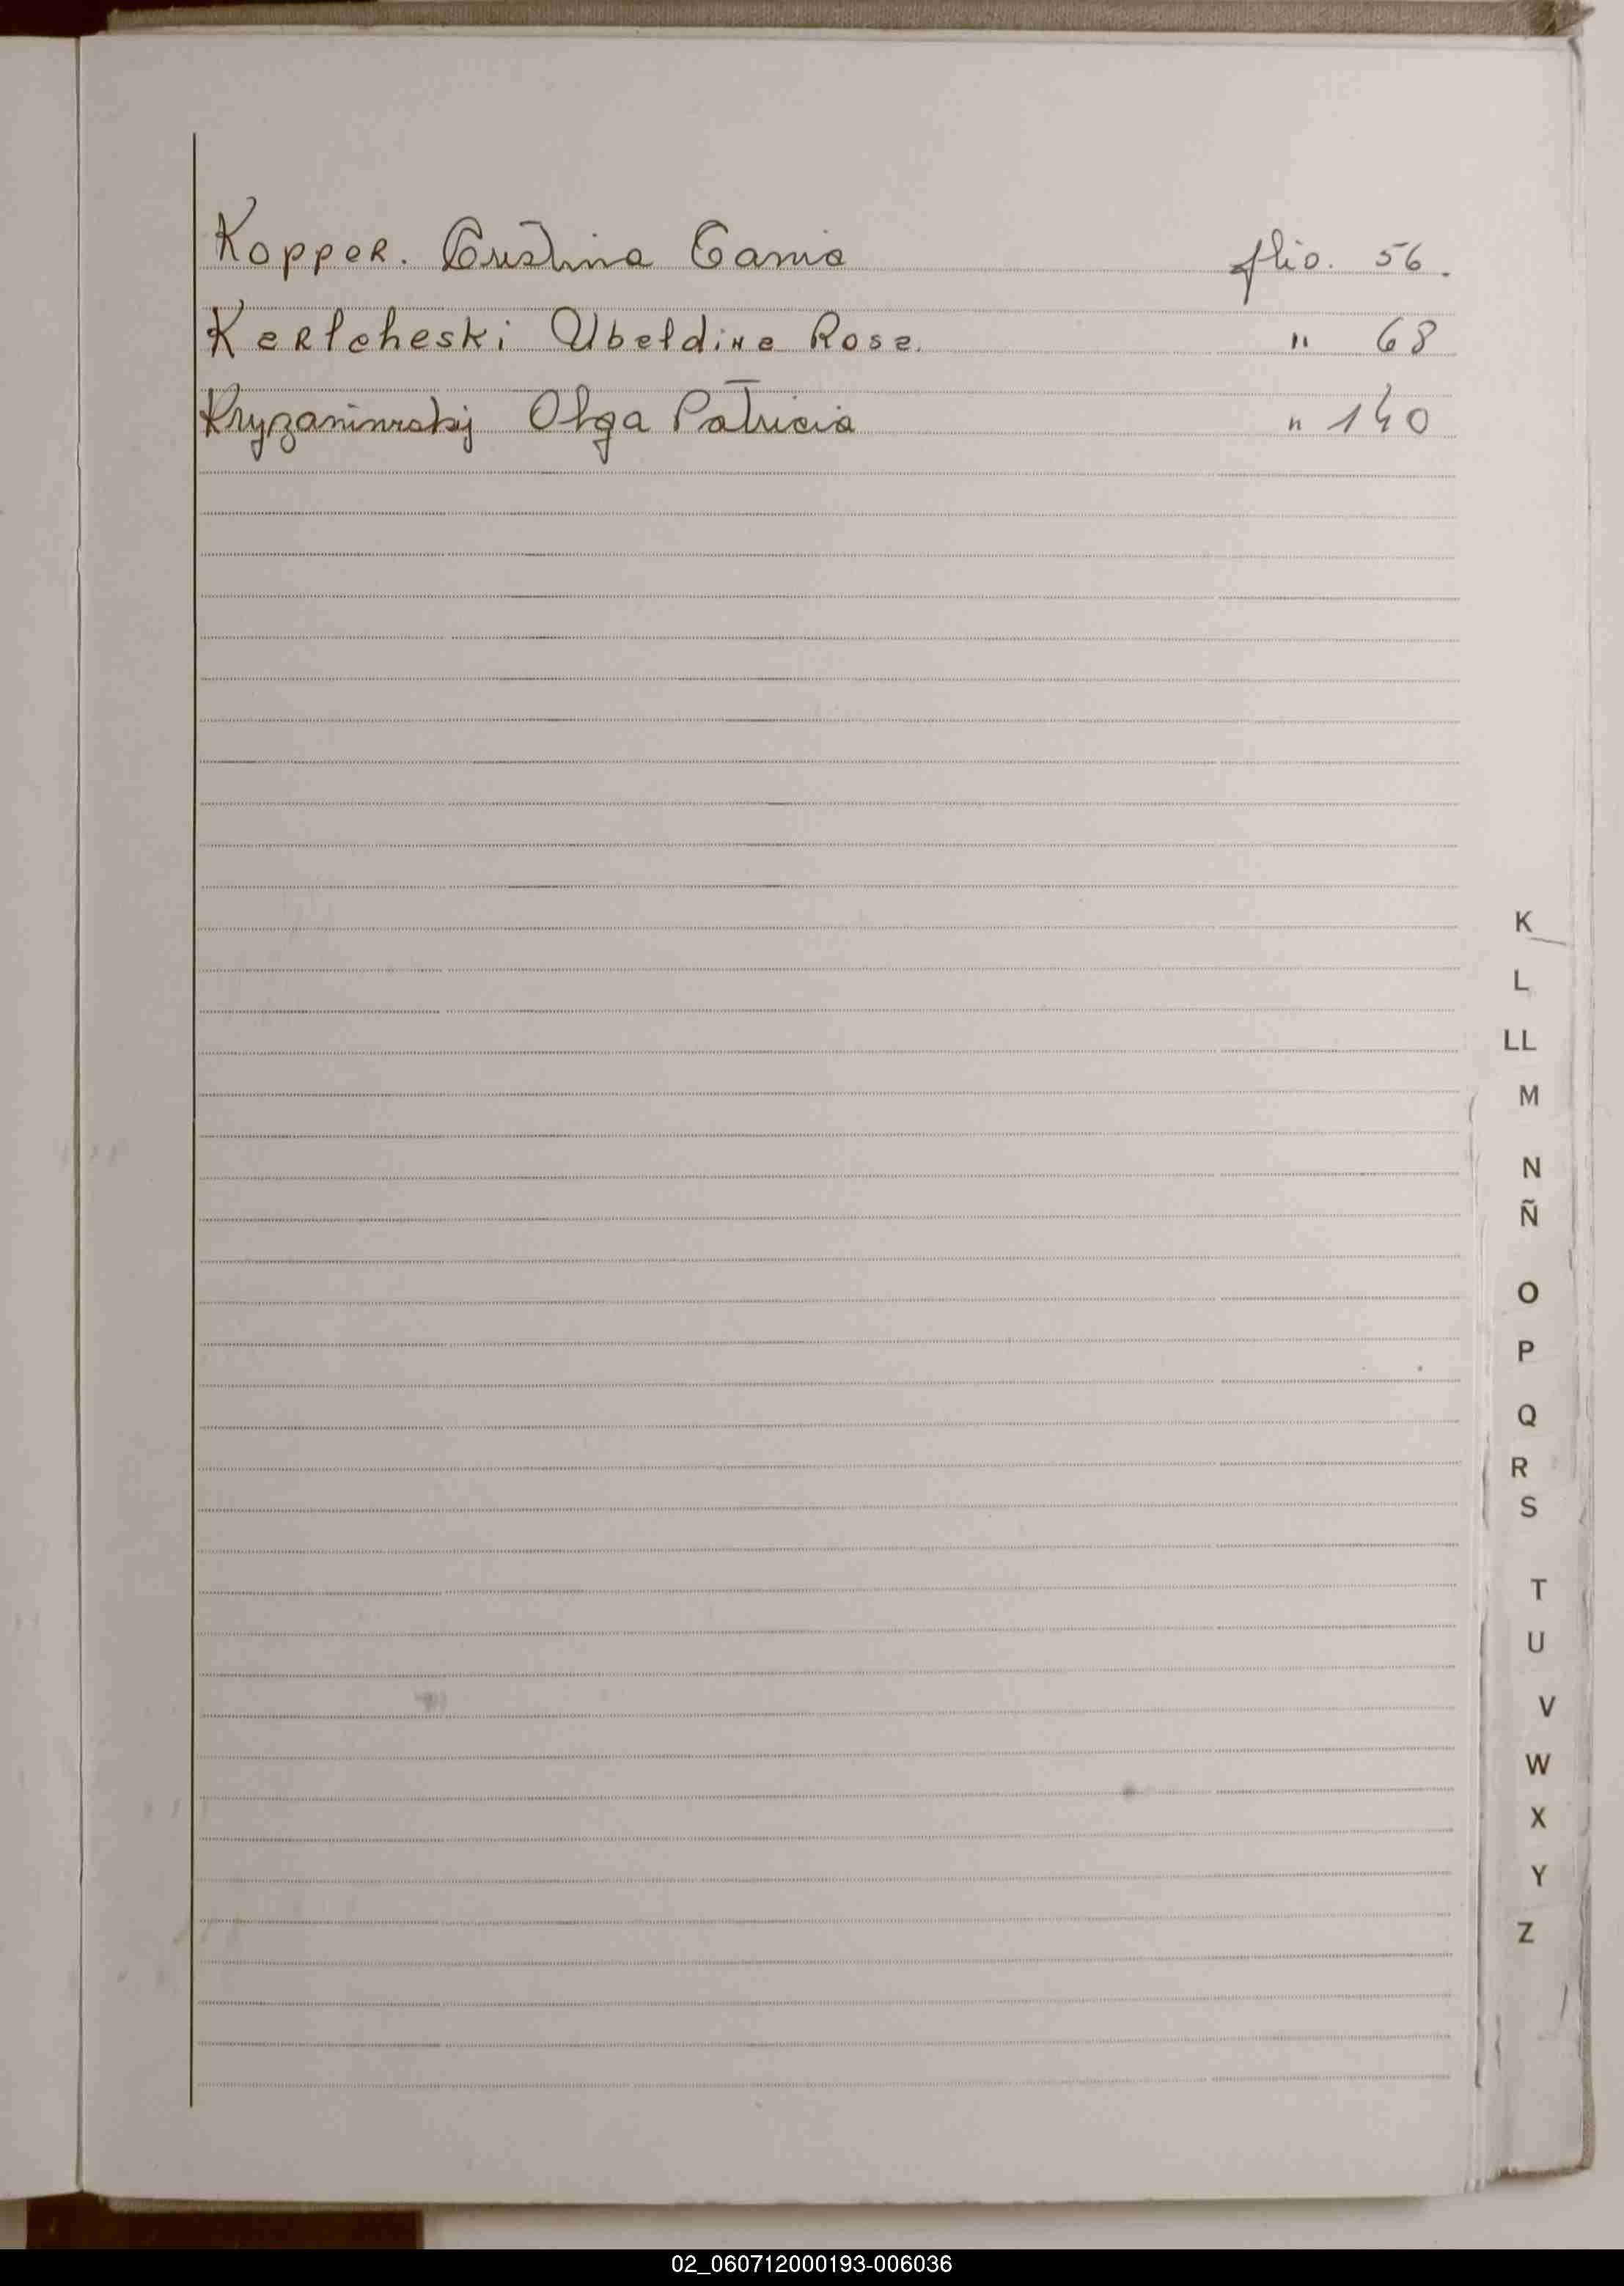 Kopper. Cristina Tania flio. 56.
Kertcheski Ubeldina Rosa. " 68
Kryzaniwskij Olga Patricia " 140
K
L
LL
M
N
Ñ
O
P
Q
R
S
T
U
V
W
X
Y
Z
02_060712000193-006036